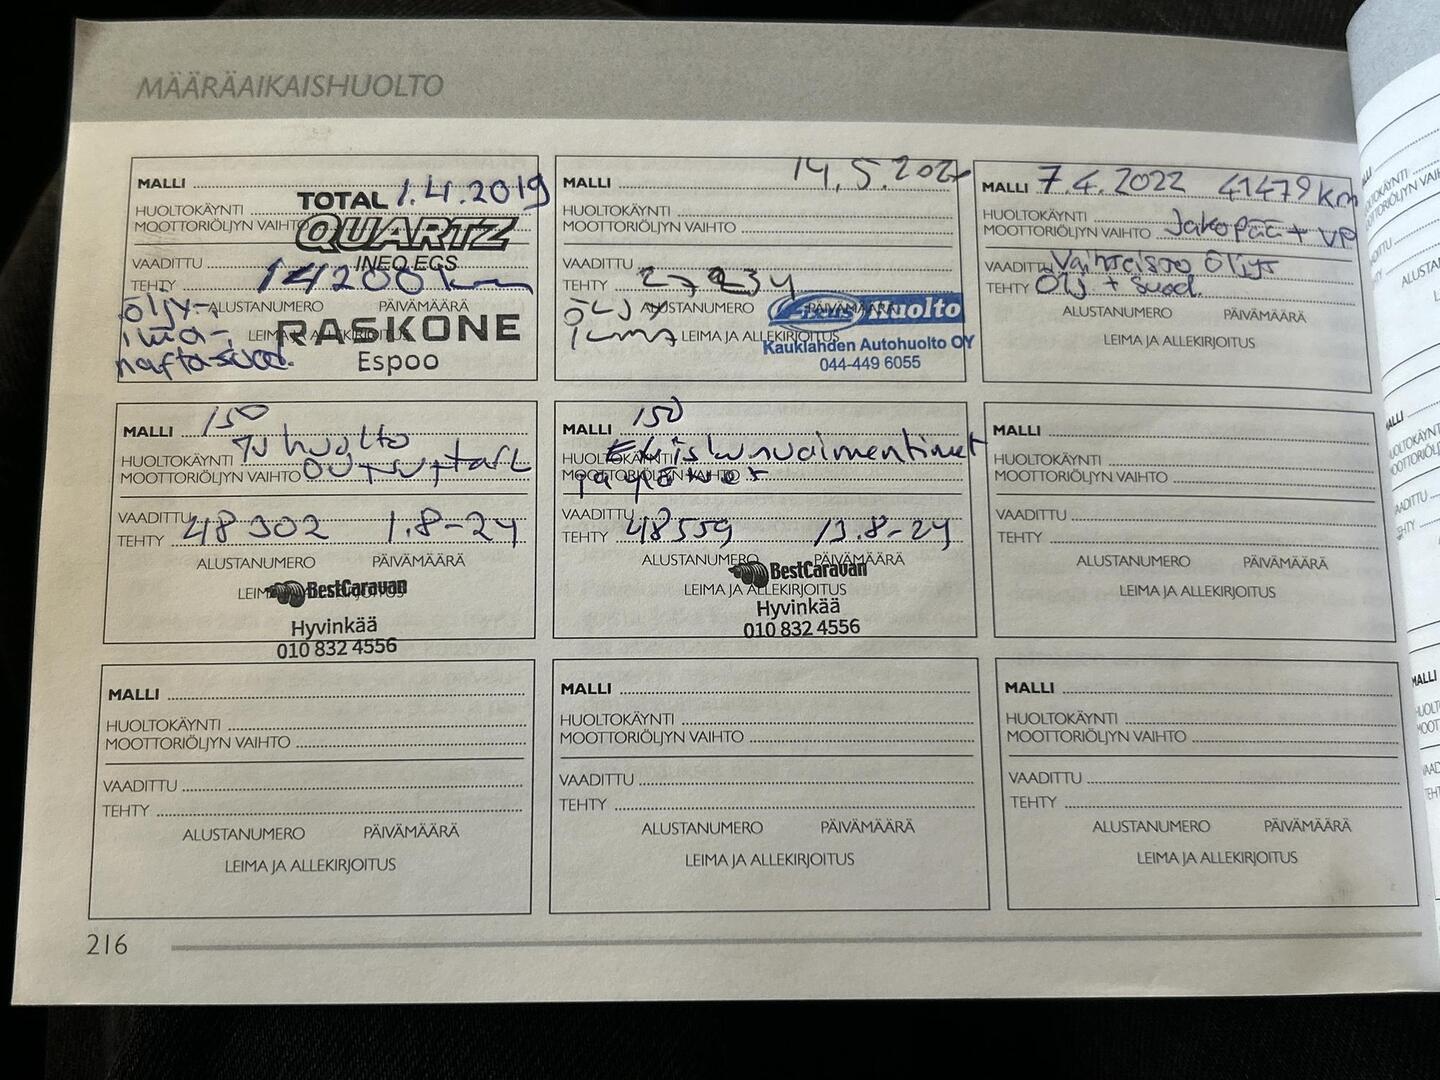 MÄÄRÄAIKAISHUOLTO
MALLI
1.4.2019
TOTAL
HUOLTOKÄYNTI
MOOTTORIÖLJYN VAIHTO
QUARTZ
INEO ECS
VAADITTU
TEHTY
142000 km
ALUSTANUMERO PÄIVÄMÄÄRÄ
LEIMA JA ALLEKIRJOITUS
öljy-,
ilma-,
nafta-suod.
RASKONE
Espoo
MALLI
14.5.202
HUOLTOKÄYNTI
MOOTTORIÖLJYN VAIHTO
VAADITTU
TEHTY
ALUSTANUMERO PÄIVÄMÄÄRÄ
LEIMA JA ALLEKIRJOITUS
ÖLJY
ILMA
Huolto
Kauklahden Autohuolto OY
044-449 6055
MALLI 7.4.2022 41479 km
HUOLTOKÄYNTI
MOOTTORIÖLJYN VAIHTO Jakopää + VP
VAADITTU Vaihteisto Öljyt
TEHTY Ölj + Suod.
ALUSTANUMERO PÄIVÄMÄÄRÄ
LEIMA JA ALLEKIRJOITUS
MALLI 150
HUOLTOKÄYNTI huolto
MOOTTORIÖLJYN VAIHTO
VAADITTU
TEHTY 48302 1.8-24
ALUSTANUMERO PÄIVÄMÄÄRÄ
LEIMA JA ALLEKIRJOITUS
BestCaravan
Hyvinkää
010 832 4556
MALLI 150
HUOLTOKÄYNTI iskunvaimentimet
MOOTTORIÖLJYN VAIHTO
VAADITTU
TEHTY 48559 13.8-24
ALUSTANUMERO PÄIVÄMÄÄRÄ
LEIMA JA ALLEKIRJOITUS
BestCaravan
Hyvinkää
010 832 4556
MALLI
HUOLTOKÄYNTI
MOOTTORIÖLJYN VAIHTO
VAADITTU
TEHTY
ALUSTANUMERO PÄIVÄMÄÄRÄ
LEIMA JA ALLEKIRJOITUS
MALLI
HUOLTOKÄYNTI
MOOTTORIÖLJYN VAIHTO
VAADITTU
TEHTY
ALUSTANUMERO PÄIVÄMÄÄRÄ
LEIMA JA ALLEKIRJOITUS
MALLI
HUOLTOKÄYNTI
MOOTTORIÖLJYN VAIHTO
VAADITTU
TEHTY
ALUSTANUMERO PÄIVÄMÄÄRÄ
LEIMA JA ALLEKIRJOITUS
MALLI
HUOLTOKÄYNTI
MOOTTORIÖLJYN VAIHTO
VAADITTU
TEHTY
ALUSTANUMERO PÄIVÄMÄÄRÄ
LEIMA JA ALLEKIRJOITUS
216